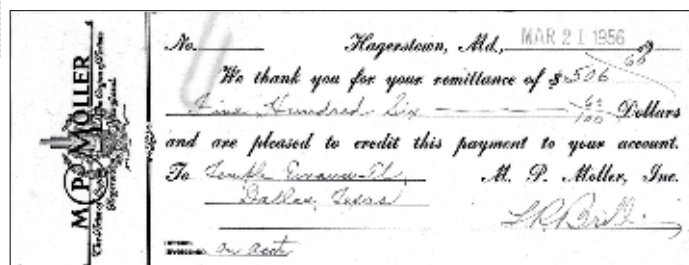 M P MOLLER
The Voice of Quality
No. Hagerstown, Md., MAR 21 1956 19
We thank you for your remittance of $506 60
Five Hundred Six 60/100 Dollars
and are pleased to credit this payment to your account.
To Temple Emanu-El, M. P. Moller, Inc.
Dallas, Texas
on acct